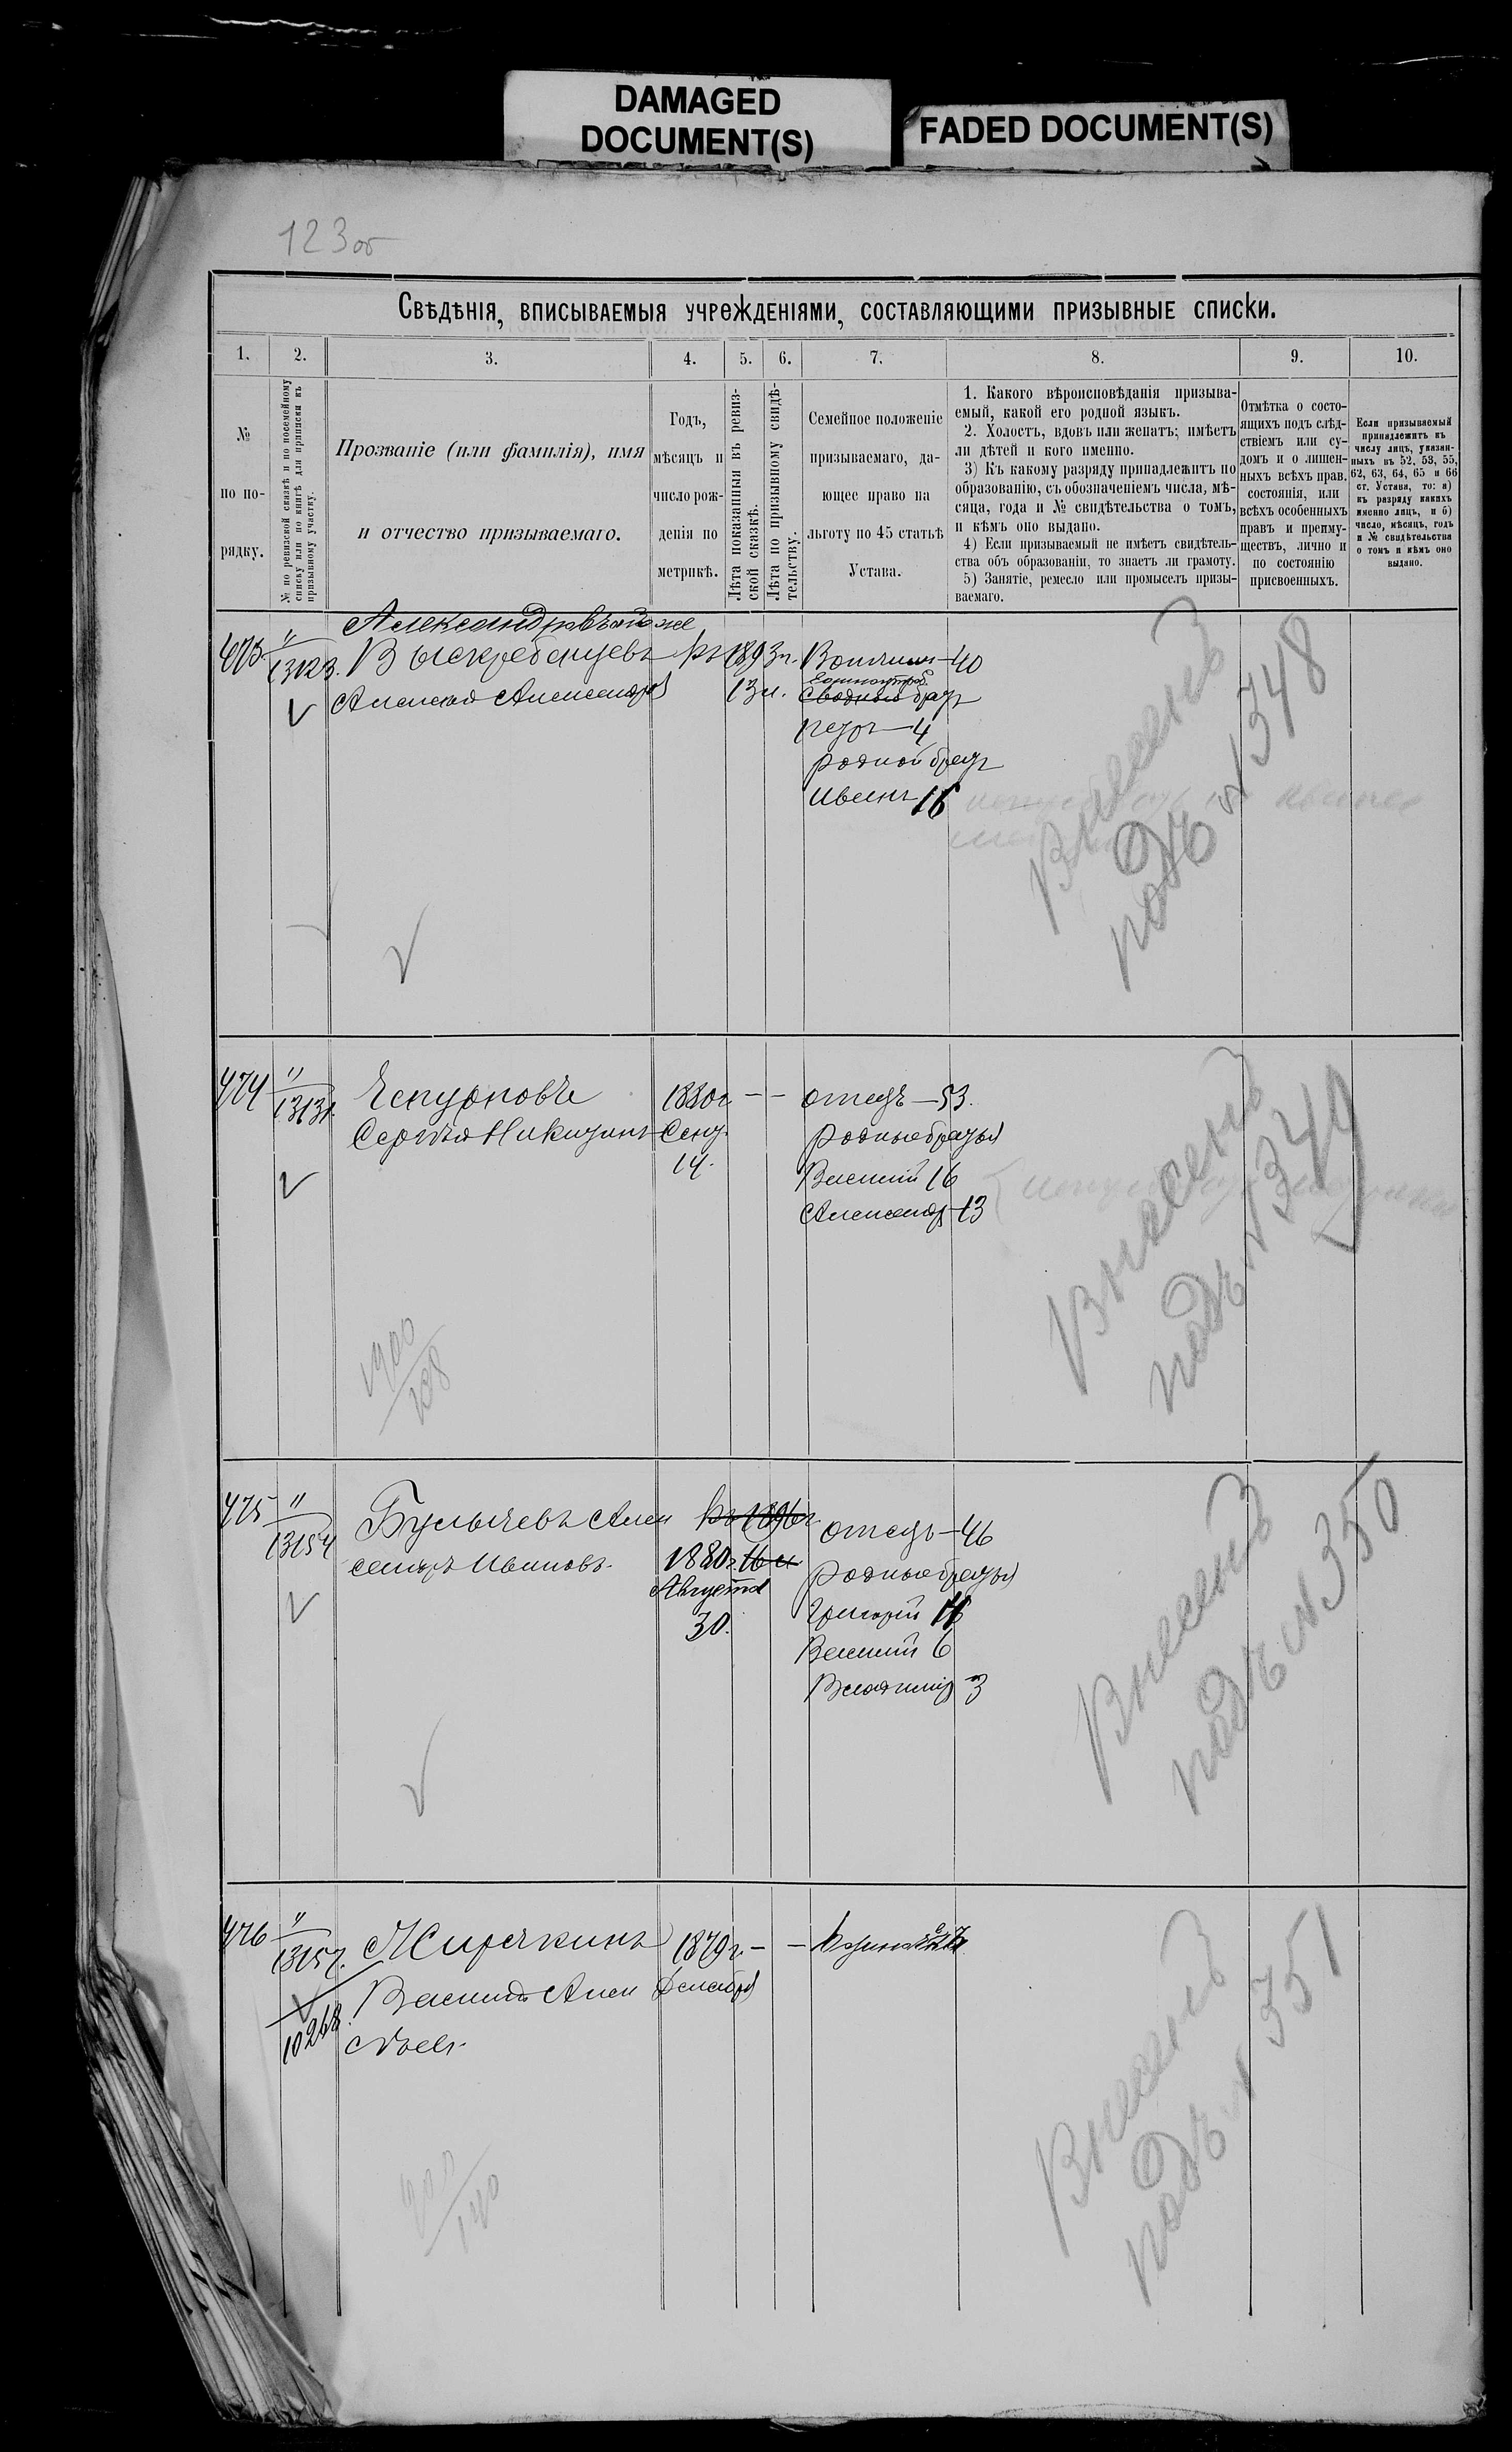 DAMAGED
DOCUMENT(S)
FADED DOCUMENT(S)
123 об
Свѣдѣнія, вписываемыя учрежденіями, составляющими призывные списки.
1. 2. 3. 4. 5. 6. 7. 8. 9. 10.
№
по по-
рядку.
№ по ревизской сказкѣ и по посемейному
списку или по книгѣ для приписки къ
призывному участку.
Прозваніе (или фамилія), имя
и отчество призываемаго.
Годъ,
мѣсяцъ и
число рож-
денія по
метрикѣ.
Лѣта показанныя въ ревиз-
ской сказкѣ.
Лѣта по призывному свидѣ-
тельству.
Семейное положеніе
призываемаго, да-
ющее право на
льготу по 45 статьѣ
Устава.
1. Какого вѣроисповѣданія призыва-
емый, какой его родной языкъ.
2. Холостъ, вдовъ или женатъ; имѣетъ
ли дѣтей и кого именно.
3) Къ какому разряду принадлежитъ по
образованію, съ обозначеніемъ числа, мѣ-
сяца, года и № свидѣтельства о томъ,
и кѣмъ оно выдано.
4) Если призываемый не имѣетъ свидѣтель-
ства объ образованіи, то знаетъ ли грамоту.
5) Занятіе, ремесло или промыселъ призы-
ваемаго.
Отмѣтка о состо-
ящихъ подъ слѣд-
ствіемъ или су-
домъ и о лишен-
ныхъ всѣхъ прав.
состоянія, или
всѣхъ особенныхъ
правъ и преиму-
ществъ, лично и
по состоянію
присвоенныхъ.
Если призываемый
принадлежитъ къ
числу лицъ, указан-
ныхъ въ 52, 53, 55,
62, 63, 64, 65 и 66
ст. Устава, то: а)
къ разряду какихъ
именно лицъ, и б)
число, мѣсяцъ, годъ
и № свидѣтельства
о томъ и кѣмъ оно
выдано.
Александровъ онъ же
473. " 13123. Выскребенцевъ Въ 1893 г. Вотчимъ 40
Алексѣй Александр 13 л. Единоутроб.
Сводный братъ
Петръ 4
родной братъ
Иванъ 16
Внесенъ
подъ № 348
474 " 13131. Чепурновъ 1880 г. – – отецъ – 53.
Сергѣй Никитинъ Сент. родные братья
14. Василій 16
Александр 13
Внесенъ
подъ № 349
1900
108
475 " 13154 Булычевъ Алек Въ 1896 г. отецъ – 46
сандръ Ивановъ. 1880 г. 16 л родные братья
Августа Григорій
30. Василій 6
Владиміръ 3
Внесенъ
подъ № 350
476 " 13157. Жирячкинъ 1879 г. – –
Василій Алек Декабря
10268. сѣевъ.
Внесенъ
подъ № 351
900
140